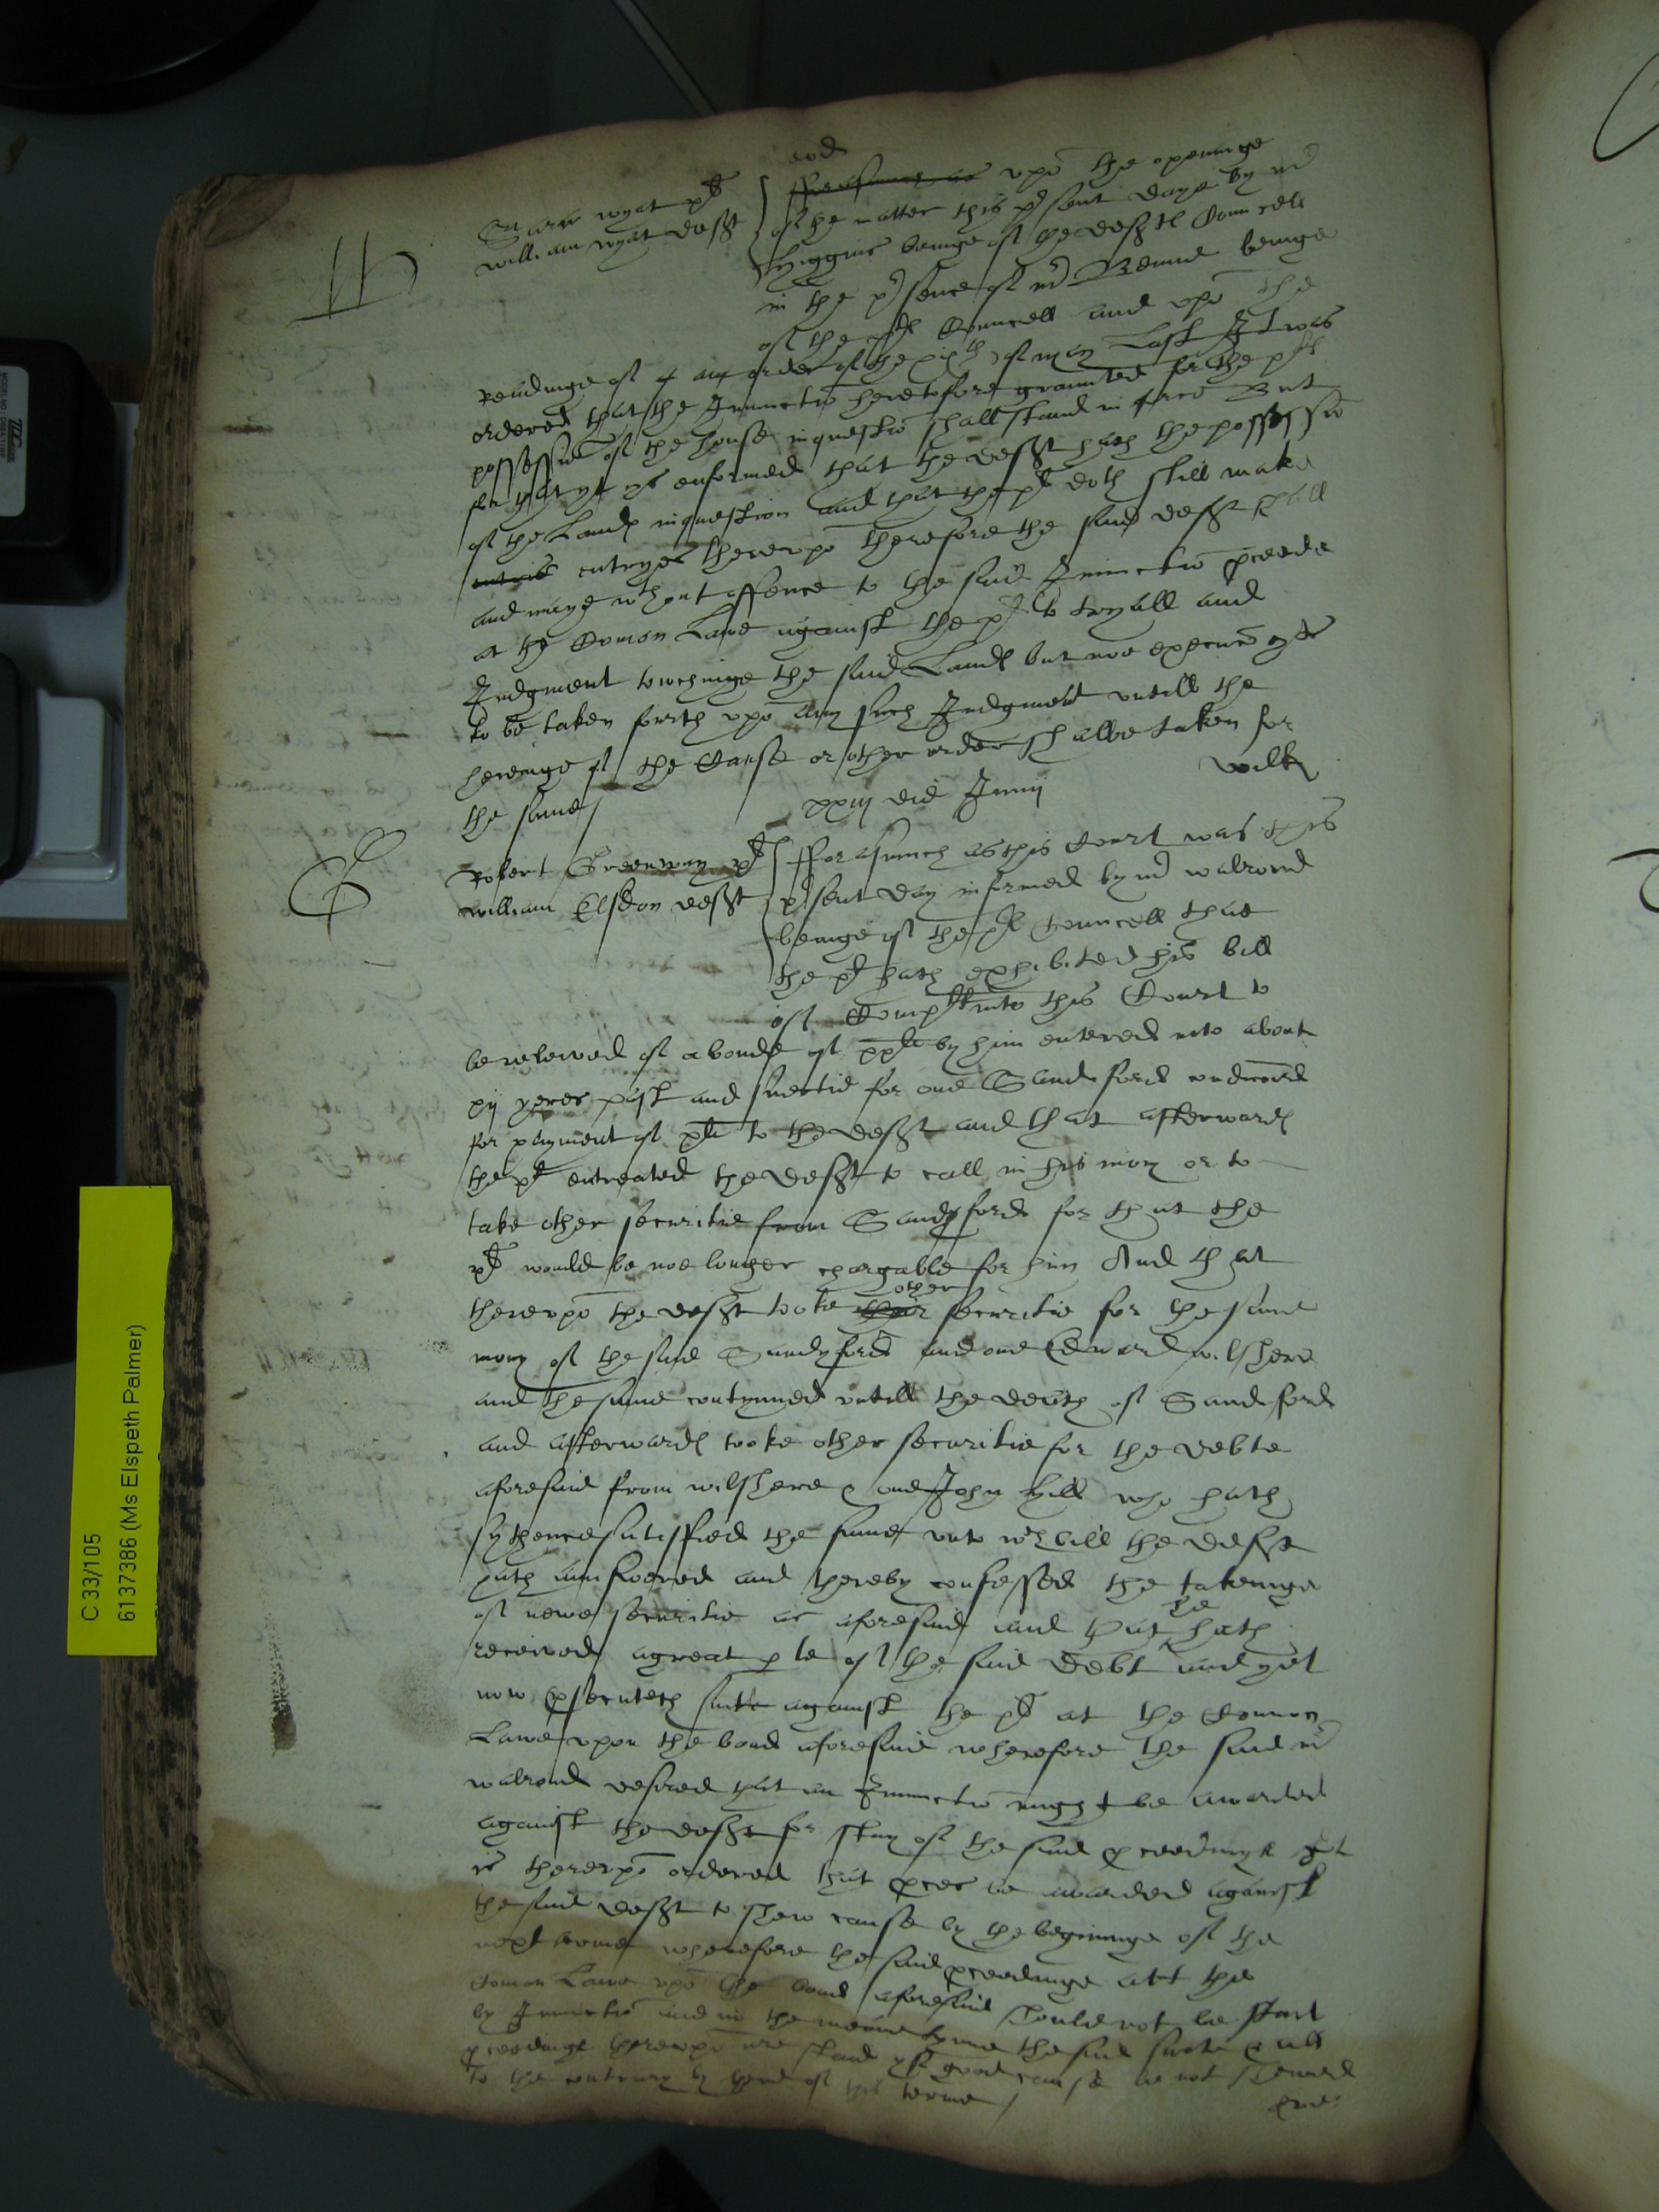 eod
wyat plt
william wyat deft
fforasmuch as upō the openinge
of the matter this pnt daye by mr
Higgins beinge of the deftes Councell
in the psence of mr beinge
of the plts Councell and upō the
Readinge of an order of the xixth of may Last It was
ordered that the Iniunctiō heretofore graunted for the plts
possessiō of the house in questiō shall stand in force But
for that yt ys enformed that the deft hath the possessiō
of the Landes in question and that the plt doth still make
entries entryes thereupō therefore the said deft shall
and maye wthout offence to the said Iniunctiō pceede
at the Comon Lawe against the plt to tryall and
Iudgment towchinge the said Landes but noe execucō
to be taken forth upō any such Iudgment untill the
hereinge of the Cause or other order shalbe taken for
the same
xxiij die Junij
Robert Greenway plt
William Elsdon deft
fforasmuch as this Court was this
psent day informed by mr walrond
beinge of the plts Councell that
the plt hath exhibited his bill
of Complt into this Court to
be releived of a bonde of xxli by him entered into about
xij yeres past and suertie for one Sandford
for payment of xli to the deft and that afterwardes
the plt entreated the deft to call in his mony or to
take other securitie from Sandyford for that the
plt would be noe longer chargable for him And that
thereupō the deft tooke other securitie for the same
mony of the said Sandyford and one Edward wilshere
and the same contynued untill the death of Sandford
and afterwardes tooke other securitie for the debte
aforesaid from wilshere & one John hill who hath
sythence satisfied the same unto wch bill the deft
hath answered and thereby confessed the takeinge
of newe securitie as aforesaid and that he hath
received a great pte of the said debt and yet
now psecuteth suite against the plt at the Comon
Lawe upon the bond aforesaid wherefore the said mr
walrond desired that an Iniunctiō might be awarded
against the deft for stay of the said pceedinges yt
is thereupō ordered that pces be awarded against
the said deft to shew cause by the beginninge of the
next terme wherefore the said pceedinge att the
Comon Lawe upō the bond aforesaid should not be staid
by Iniunctiō and in the meane tyme the said suite & all
pceedinges thereupō are staid yf good cause be not shewed
to the contrary by thend of this terme